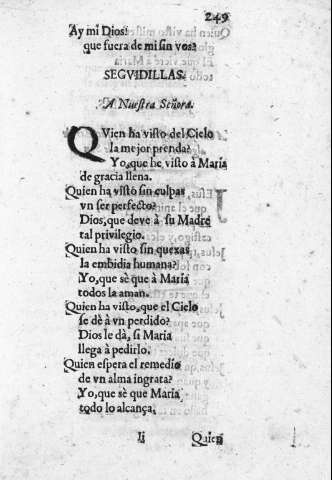 249
Ay mi Dios!
que fuera de mi sin vos?
SEGVIDILLAS.
A Nuestra Señora.
QVien ha visto del Cielo
la mejor prenda?
Yo, que he visto à Maria
de gracia llena.
Quien ha visto sin culpas
vn ser perfecto?
Dios, que deve à su Madre
tal privilegio.
Quien ha visto sin quexas
la embidia humana?
Yo, que sè que à Maria
todos la aman.
Quien ha visto, que el Cielo
se dè à vn perdido?
Dios le dà, si Maria
llega à pedirlo.
Quien espera el remedio
de vn alma ingrata?
Yo, que sè que Maria
todo lo alcança.
Ii
Quien